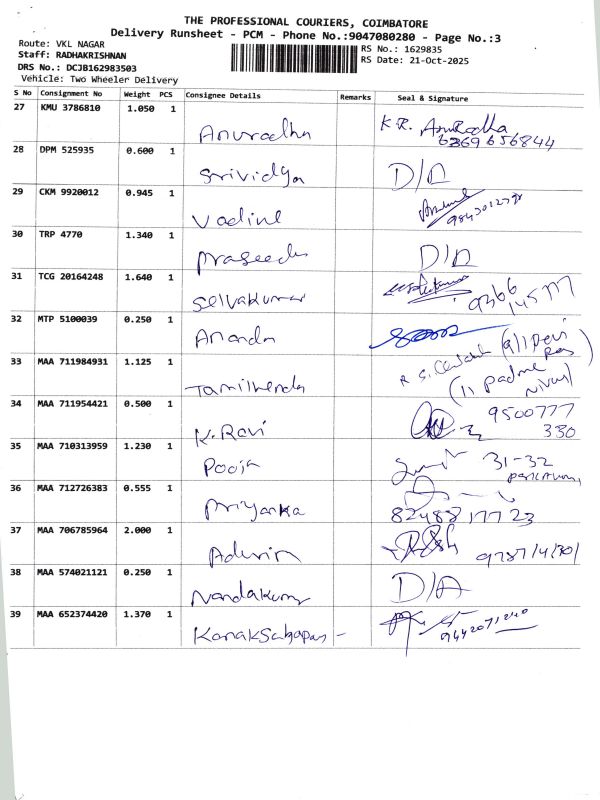 THE PROFESSIONAL COURIERS, COIMBATORE
Delivery Runsheet - PCM - Phone No.:9047080280 - Page No.:3
Route: VKL NAGAR
Staff: RADHAKRISHNAN
DRS No.: DCJB162983503
Vehicle: Two Wheeler Delivery
RS No.: 1629835
RS Date: 21-Oct-2025
S No Consignment No Weight PCS Consignee Details Remarks Seal & Signature
27 KMU 3786810 1.050 1 Anuradha K.R. Anuradha
6369656844
28 DPM 525935 0.600 1 Srividya D/A
29 CKM 9920012 0.945 1
30 TRP 4770 1.340 1 D/A
31 TCG 20164248 1.640 1 Selvakumar 9366
32 MTP 5100039 0.250 1 Ananda
33 MAA 711984931 1.125 1
34 MAA 711954421 0.500 1 K.Ravi 9500777
330
35 MAA 710313959 1.230 1 Pooja 31-32
36 MAA 712726383 0.555 1 Priyanka
8248817723
37 MAA 706785964 2.000 1
38 MAA 574021121 0.250 1 Nandakumar D/A
39 MAA 652374420 1.370 1